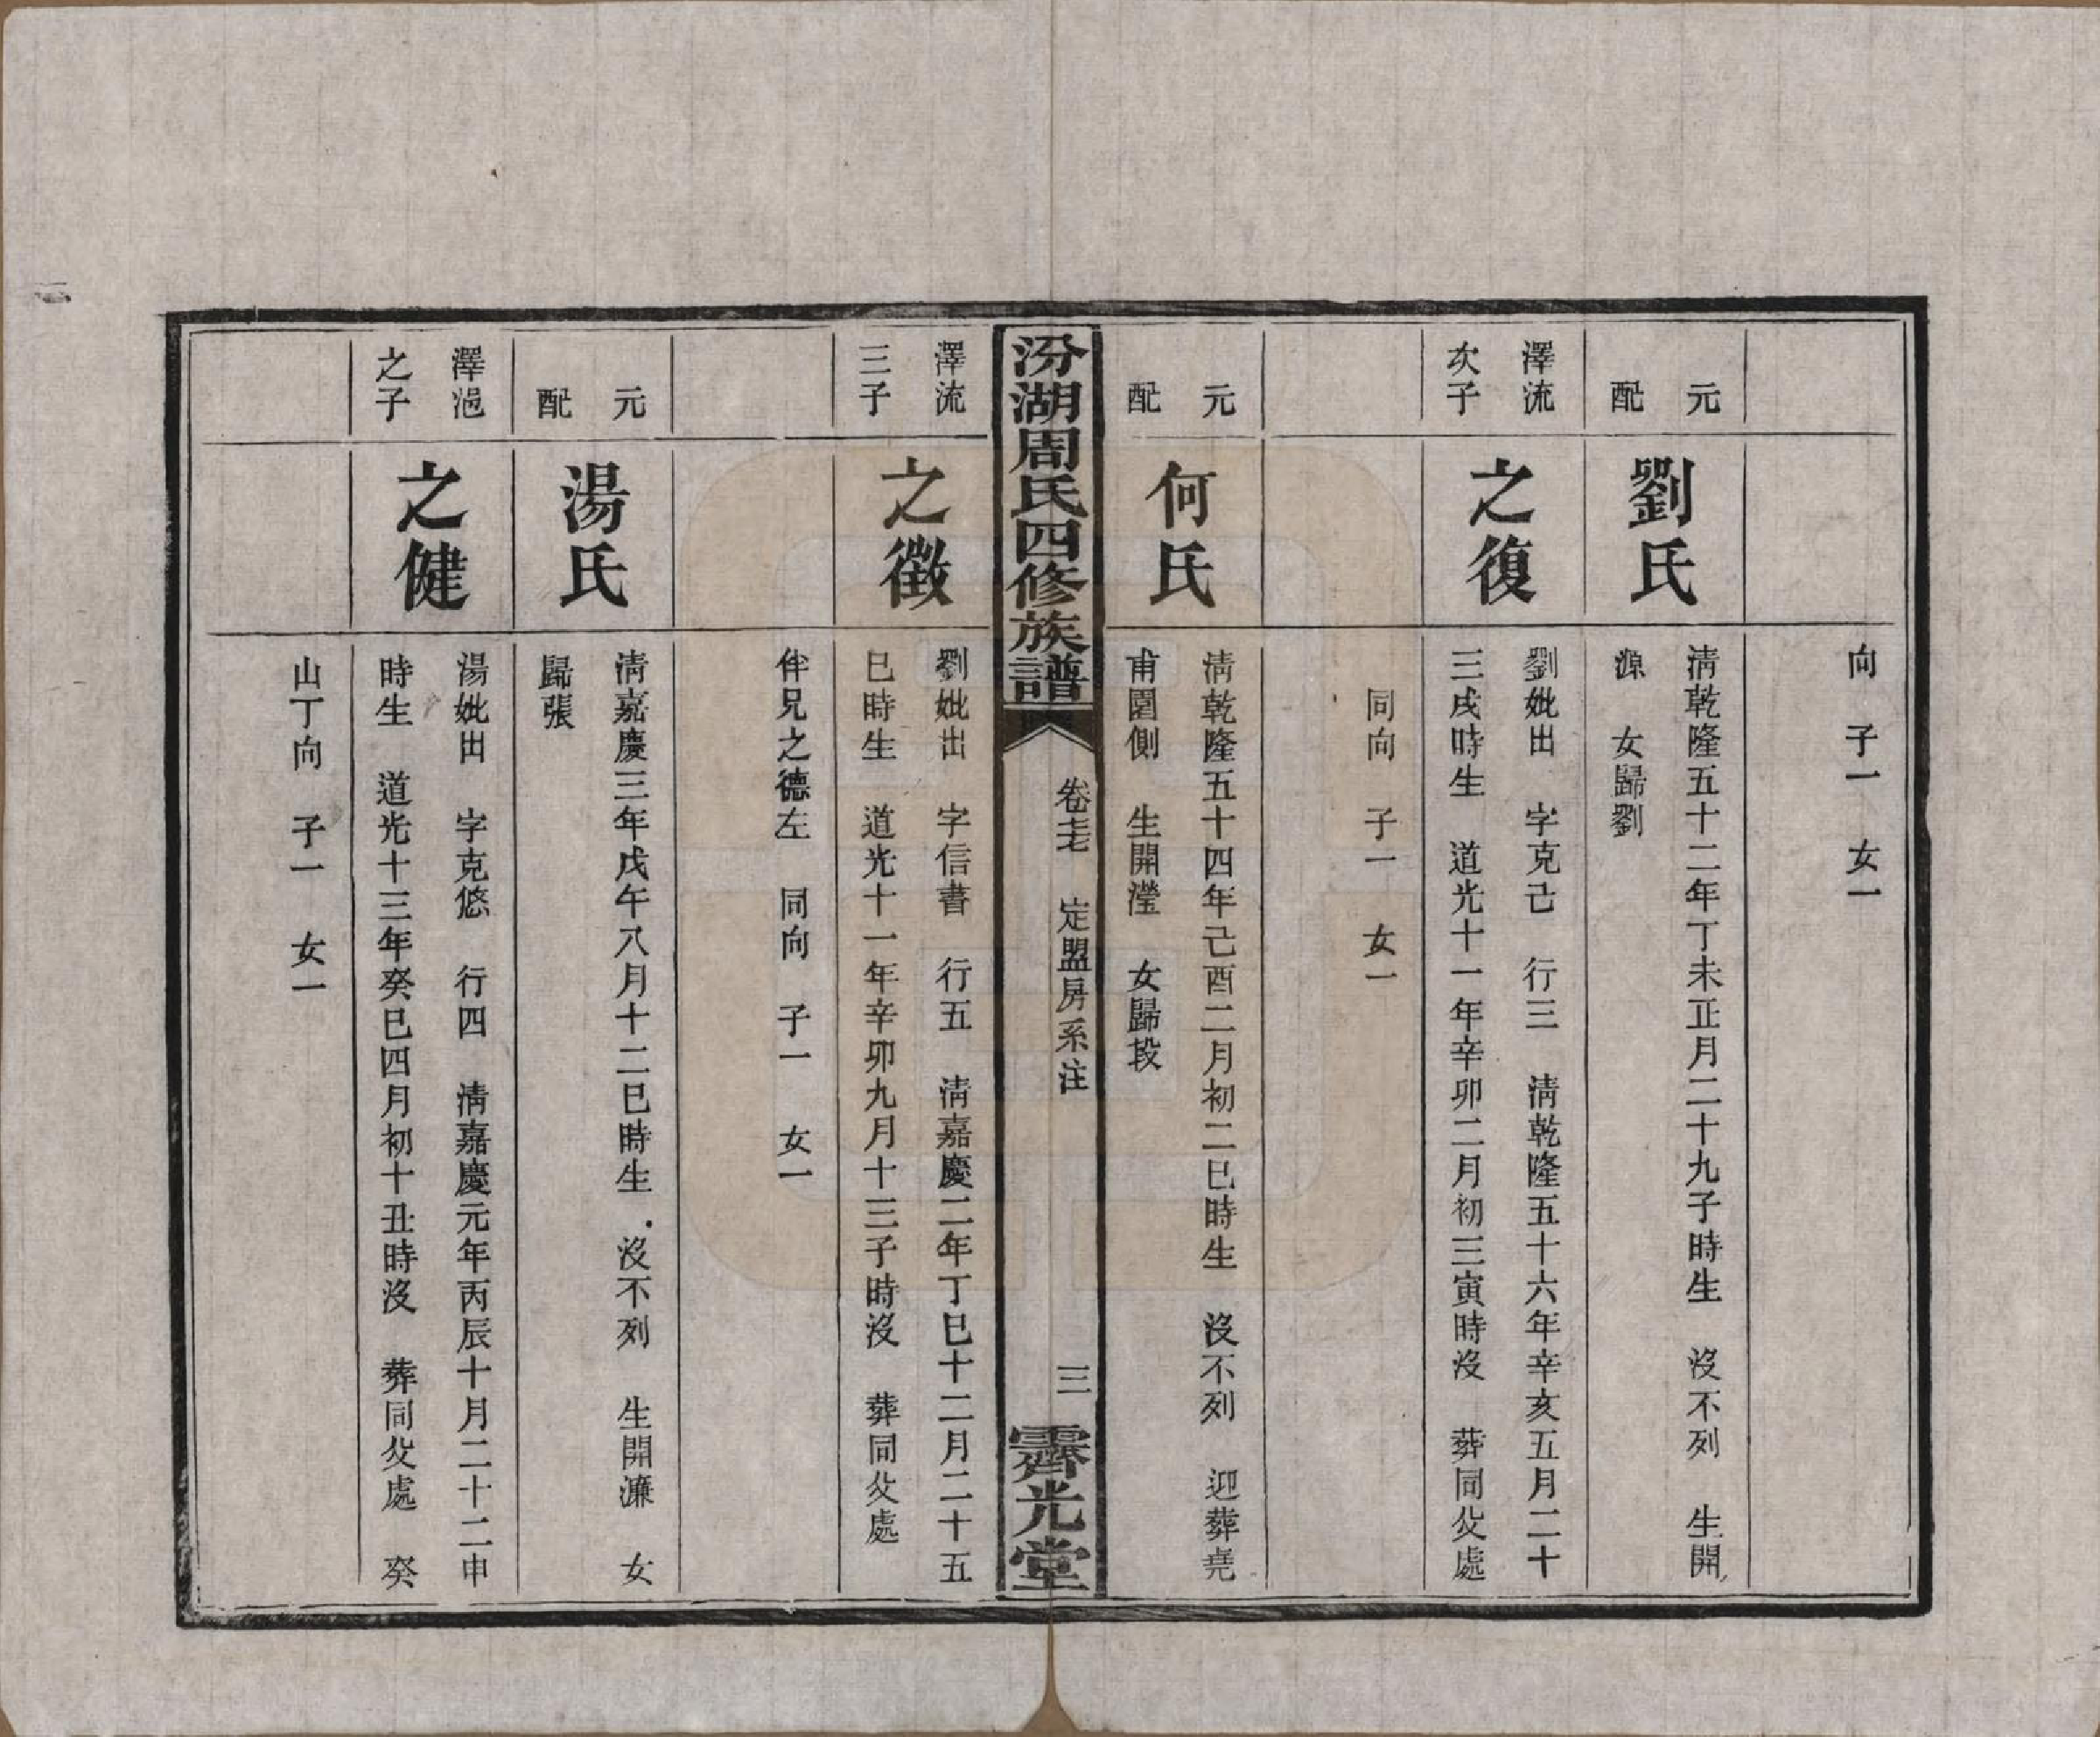 向　子一　女一
元
配
劉氏
清乾隆五十二年丁未正月二十九子時生　沒不列　生開
源　女歸劉
澤流
次子
之復
劉妣出　字克己　行三　清乾隆五十六年辛亥五月二十
三戌時生　道光十一年辛卯二月初三寅時沒　葬同父處
同向　子一　女一
元
配
何氏
清乾隆五十四年己酉二月初二巳時生　沒不列　迎葬堯
甫園側　生開瀅　女歸段
汾湖周氏四修族譜
卷七　定盟房系注
三
霽光堂
澤流
三子
之徵
劉妣出　字信書　行五　清嘉慶二年丁巳十二月二十五
巳時生　道光十一年辛卯九月十三子時沒　葬同父處
伴兄之德左　同向　子一　女一
元
配
湯氏
清嘉慶三年戊午八月十二巳時生　沒不列　生開濂　女
歸張
澤浥
之子
之健
湯妣出　字克悠　行四　清嘉慶元年丙辰十月二十二申
時生　道光十三年癸巳四月初十丑時沒　葬同父處　癸
山丁向　子一　女一